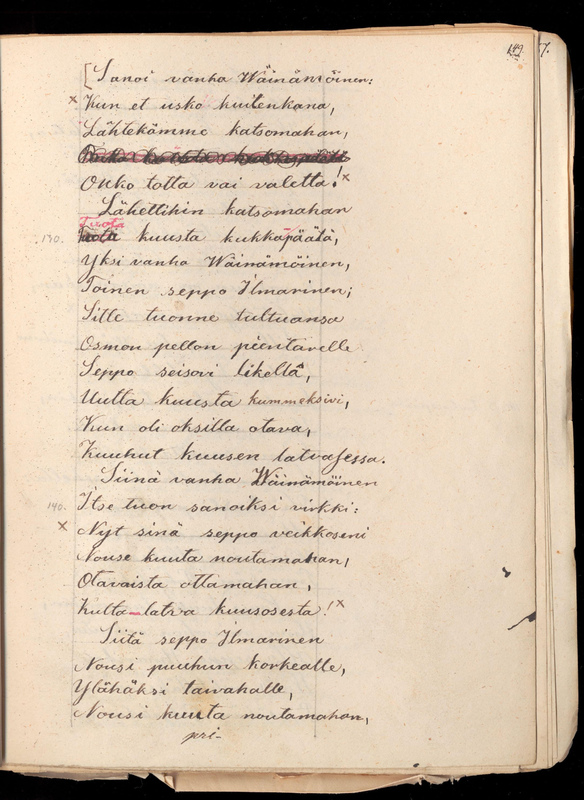 149. 7.
[Sanoi vanha Wäinämöinen:
x Kun et usko kuitenkana,
Lähtekämme katsomahan,
Onko totta vai valetta!x
Lähettihin katsomahan
Tuota
130. kuusta kukkapäätä,
Yksi vanha Wäinämöinen,
Toinen seppo Ilmarinen;
Sitte tuonne tultuansa
Osmon pellon pientarelle
Seppo seisovi likellä,
Uutta kuusta kummeksivi,
Kun oli oksilla otava,
Kuuhut kuusen latvasessa.
Siinä vanha Wäinämöinen
140. Itse tuon sanoiksi virkki:
x Nyt sinä seppo veikkoseni
Nouse kuuta noutamahan,
Otavaista ottamahan,
Kulta-latva kuusosesta!x
Siitä seppo Ilmarinen
Nousi puuhun korkealle,
Ylähäksi taivahalle,
Nousi kuuta noutamahan,
pri-